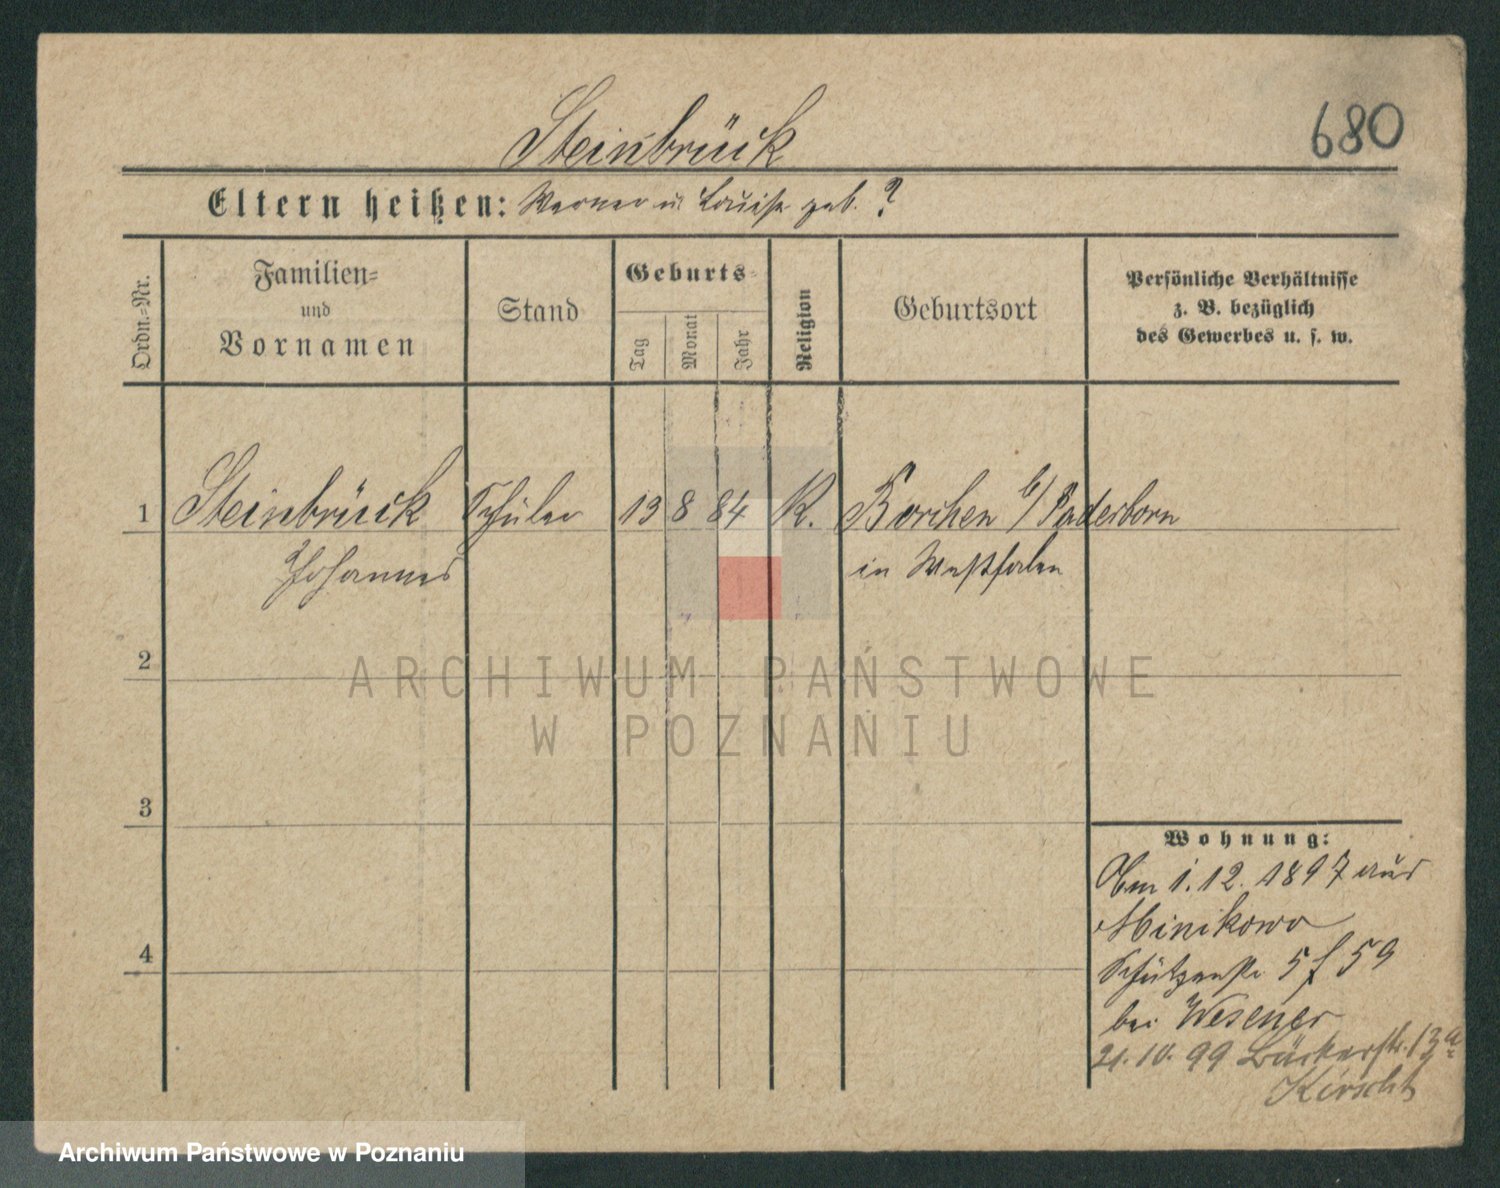 680
Steinbrück
Eltern heißen: Werner u. Louise geb. ?
Ordn.-Nr.
Familien-
und
Vornamen
Stand
Geburts-
Tag
Monat
Jahr
Religion
Geburtsort
Persönliche Verhältnisse
z. B. bezüglich
des Gewerbes u. s. w.
1 Steinbrück Schüler 13 8 84 K. Borchen b/ Paderborn
Johannes in Westfalen
2
ARCHIWUM PAŃSTWOWE
W POZNANIU
3
Wohnung:
Am 1.12.1897 aus
Minikowo
Schützenstr 5 f 59
4
bei Wesener
21.10.99 Bäckerstr. 13a
Archiwum Państwowe w Poznaniu